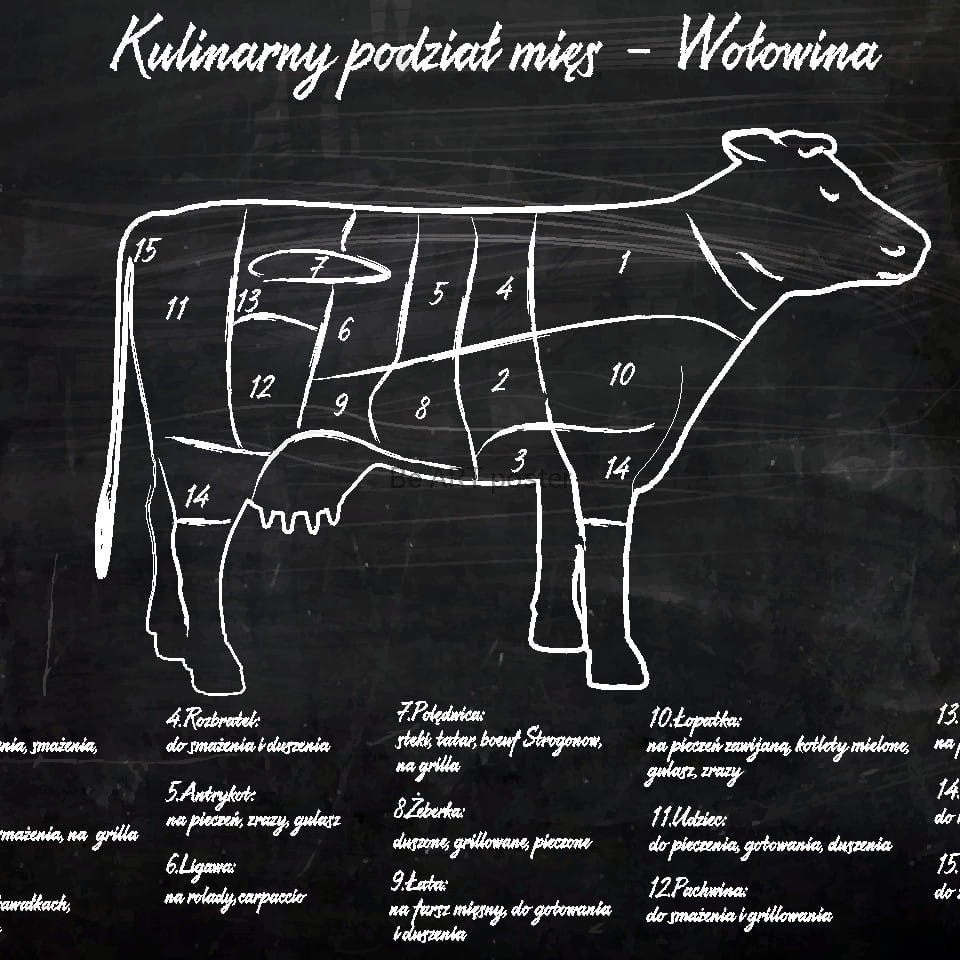 Kulinarny podział mięs - Wołowina
15
7
1
11
13
5
4
6
12
9
8
2
10
3
14
14
Be ART poster
smażenia,
smażenia, na grilla
4.Rozbratel:
do smażenia i duszenia
5.Antrykot:
na pieczeń, zrazy, gulasz
6.Ligawa:
na rolady, carpaccio
7.Polędwica:
steki, tatar, boeuf Strogonow,
na grilla
8.Żeberka:
duszone, grillowane, pieczone
9.Łata:
na farsz mięsny, do gotowania
i duszenia
10.Łopatka:
na pieczeń zawijaną, kotlety mielone,
gulasz, zrazy
11.Udziec:
do pieczenia, gotowania, duszenia
12.Pachwina:
do smażenia i grillowania
13.
na
14.
do
15.
do